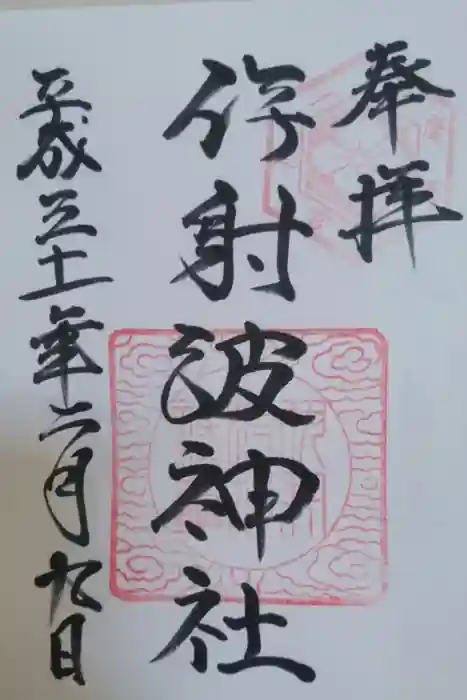 奉拝
伊射波神社
平成三十一年二月九日